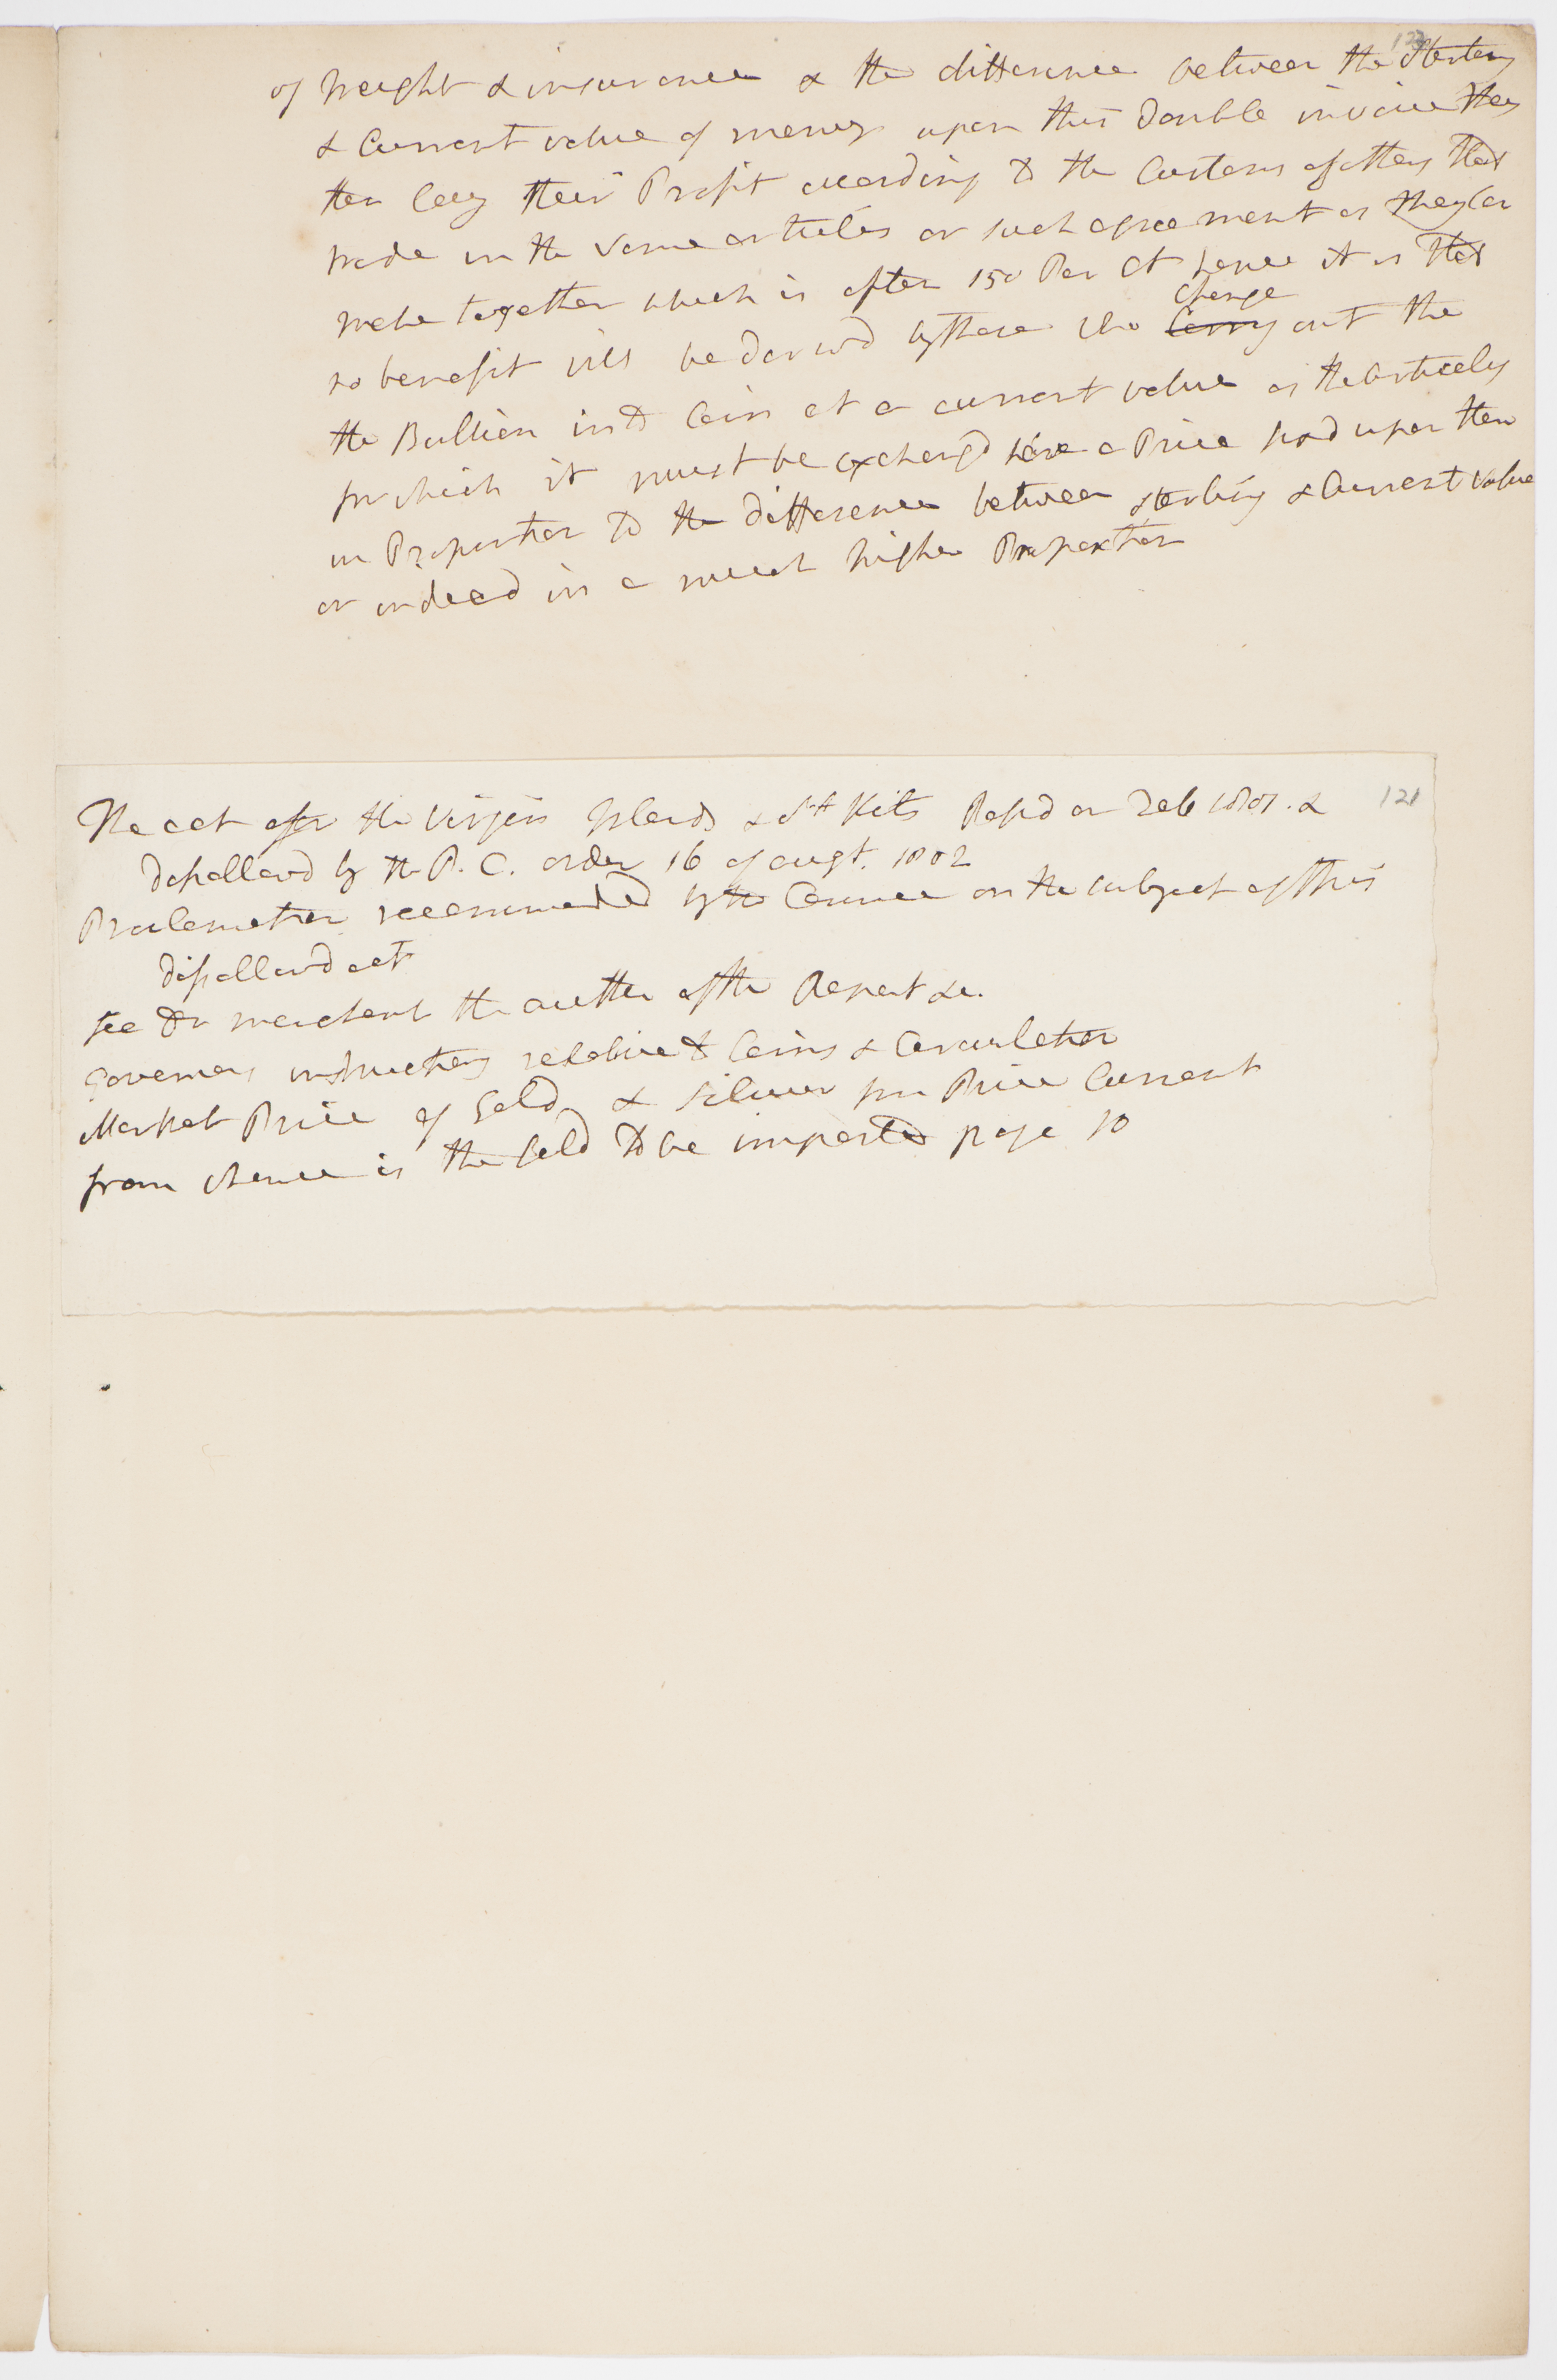 122
of freight & insurance & the difference between the sterling
& Current value of money upon this double invoice they
then lay their Profit according to the Customs of others that
trade in the same articles or such agreement as they Can
make together which is often 150 Per Ct hence it is that
change
no benefit will be derivd by those who Carry out the
the Bullion into Coin at a current value as the Articles
for which it must be exchangd have a Price put upon them
in Proportion to the difference between sterling & Current value
or indeed in a much higher Proportion
121
The act for the Virgin Islands & St Kits Passd on Feb 1801. &
disallowd by the P. C. order 16 of augt. 1802
Proclamation recommended by the Comee on the subject of this
disallowd act
see Dr merchant the author of the Report &c.
Governors instructions relative to Coins & Circulation
Market Price of Gold & silver pr Price Current
from whence is the Gold to be imported page 10